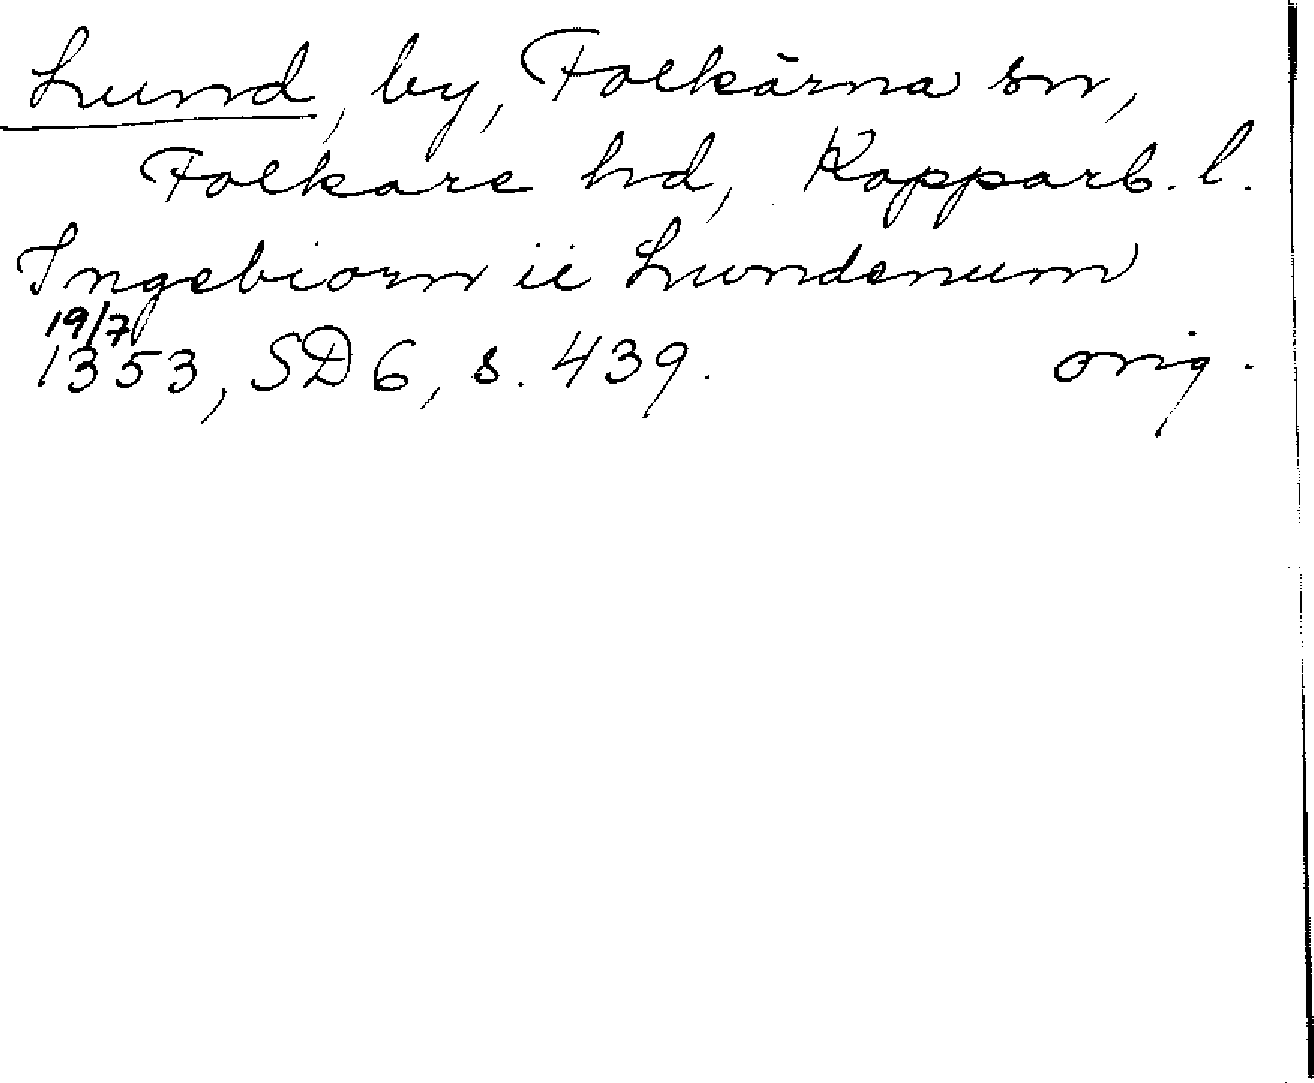 Lund, by, Folkärna sn,
Folkare hd, Kopparb. l.
Ingebiorn ii Lundenum
19/7
1353, SD 6, s. 439. orig.